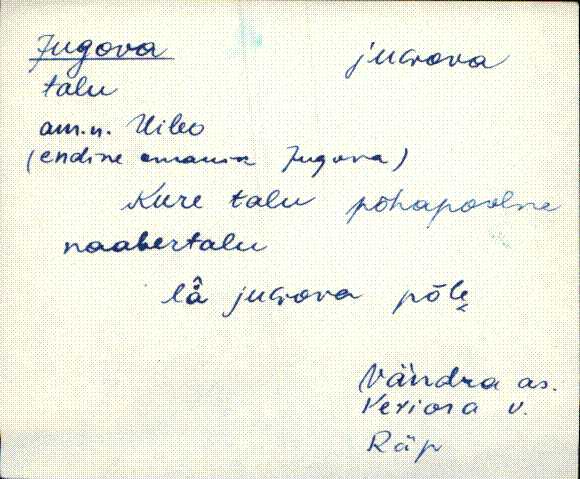 Jugova juɢova
talu
am.n. Uibo
(endine omanik Jugova)
Kure talu põhapoolne
naabertalu
lâ juɢova põle̬
Vändra as.
Veriora v.
Räp